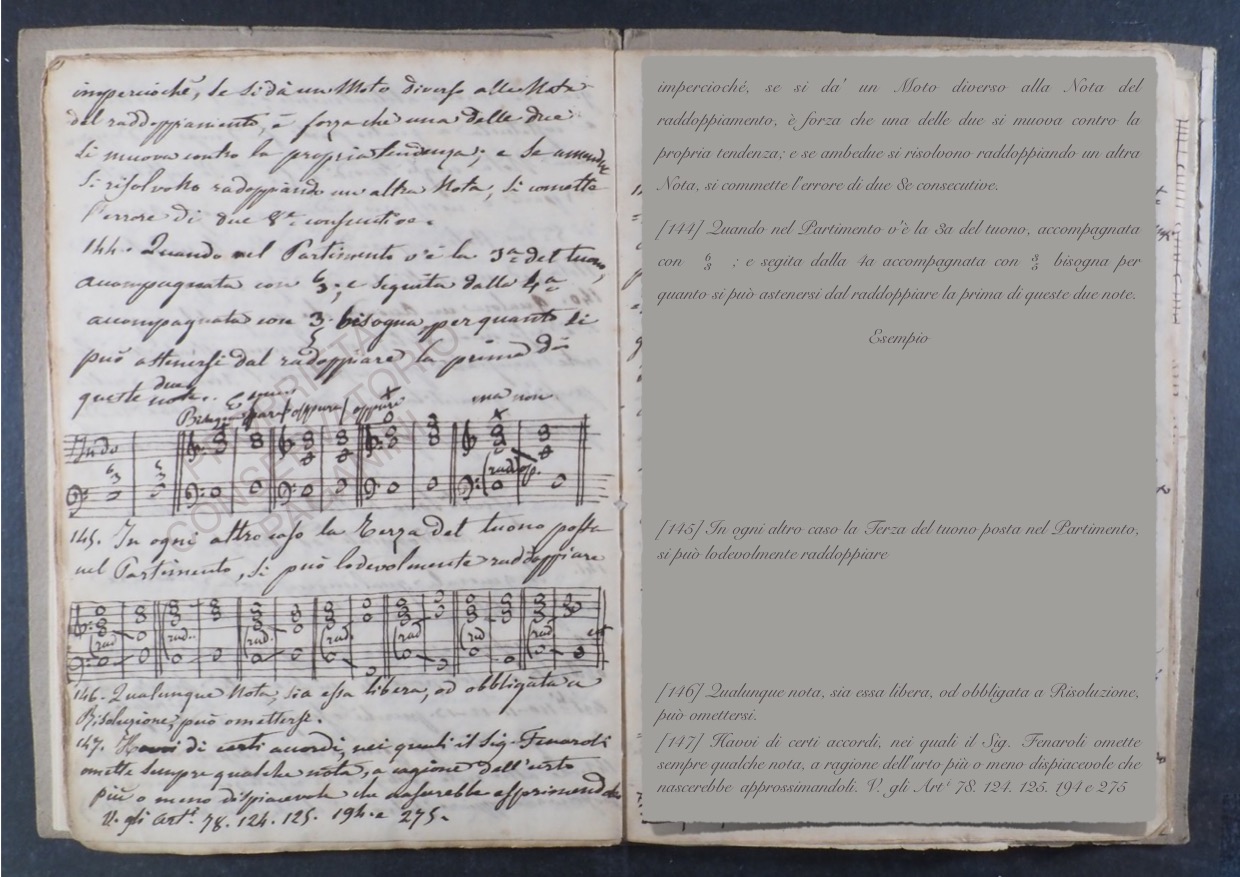 imperciochè, se si dà un Moto diverso alla Nota
del raddoppiamento, è forza che una delle due
si muova contro la propria tendenza; e se amendue
si risolvono radoppiando un altra Nota, si comette
l'errore di due 8e consecutive.
144. Quando nel Partimento v'è la 3a del tuono,
accompagnata con 6 3; e seguita dalla 4a
accompagnata con 3 5 bisogna per quanto si
può astenersi dal radoppiare la prima di
queste due note. Esempio
Bisogna fare oppure oppure ma non
In do
6 3 5 3
(radop.
145. In ogni altro caso la Terza del tuono posta
nel Partimento, si può lodevolmente raddoppiare
(rad (rad. (rad. (rad (rad (rad (rad.
146. Qualunque Nota, sia essa libera, od obbligata a
Risoluzione, può omettersi.
147. Havvi di certi accordi, nei quali il Sig. Fenaroli
omette sempre qualche nota, a ragione dell'urto
più o meno dispiacevole che nascerebbe
V. gli Arti 78. 124. 125. 194. e 275.
PROPRIETÀ
CONSERVATORIO
PAGANINI
imperciochè, se si da' un Moto diverso alla Nota del
raddoppiamento, è forza che una delle due si muova contro la
propria tendenza; e se ambedue si risolvono raddoppiando un altra
Nota, si commette l'errore di due 8e consecutive.
[144] Quando nel Partimento v'è la 3a del tuono, accompagnata
con 6 3 ; e segita dalla 4a accompagnata con 3 5 bisogna per
quanto si può astenersi dal raddoppiare la prima di queste due note.
Esempio
[145] In ogni altro caso la Terza del tuono posta nel Partimento,
si può lodevolmente raddoppiare
[146] Qualunque nota, sia essa libera, od obbligata a Risoluzione,
può omettersi.
[147] Havvi di certi accordi, nei quali il Sig. Fenaroli omette
sempre qualche nota, a ragione dell'urto più o meno dispiacevole che
nascerebbe approssimandoli. V. gli Arti 78. 124. 125. 194 e 275